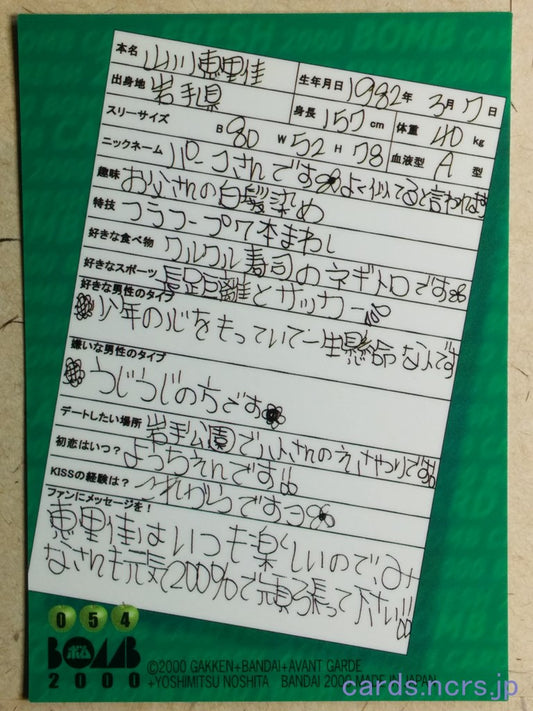 本名 山川恵里佳
生年月日 1982年 3月 7日
出身地 岩手県
身長 157cm 体重 40kg
スリーサイズ B 80 W 52 H 78 血液型 A 型
ニックネーム パーコさんですよく似てると言われます
趣味 お父さんの白髪染め
特技 フラフープ7本まわし
好きな食べ物 クルクル寿司のネギトロです
好きなスポーツ 長距離とサッカー
好きな男性のタイプ
少年の心をもっていて一生懸命な人です
嫌いな男性のタイプ
うじうじの方です
デートしたい場所 岩手公園でハトさんのえさやりです
初恋はいつ? ようちえんです
KISSの経験は? これからですヨ
ファンにメッセージを!
恵里佳はいつも楽しいので、み
なさんも元気200%で頑張って下さい!!
054
BOMB
ボム
2000
©2000 GAKKEN+BANDAI+AVANT GARDE
+YOSHIMITSU NOSHITA BANDAI 2000 MADE IN JAPAN
cards.ncrs.jp